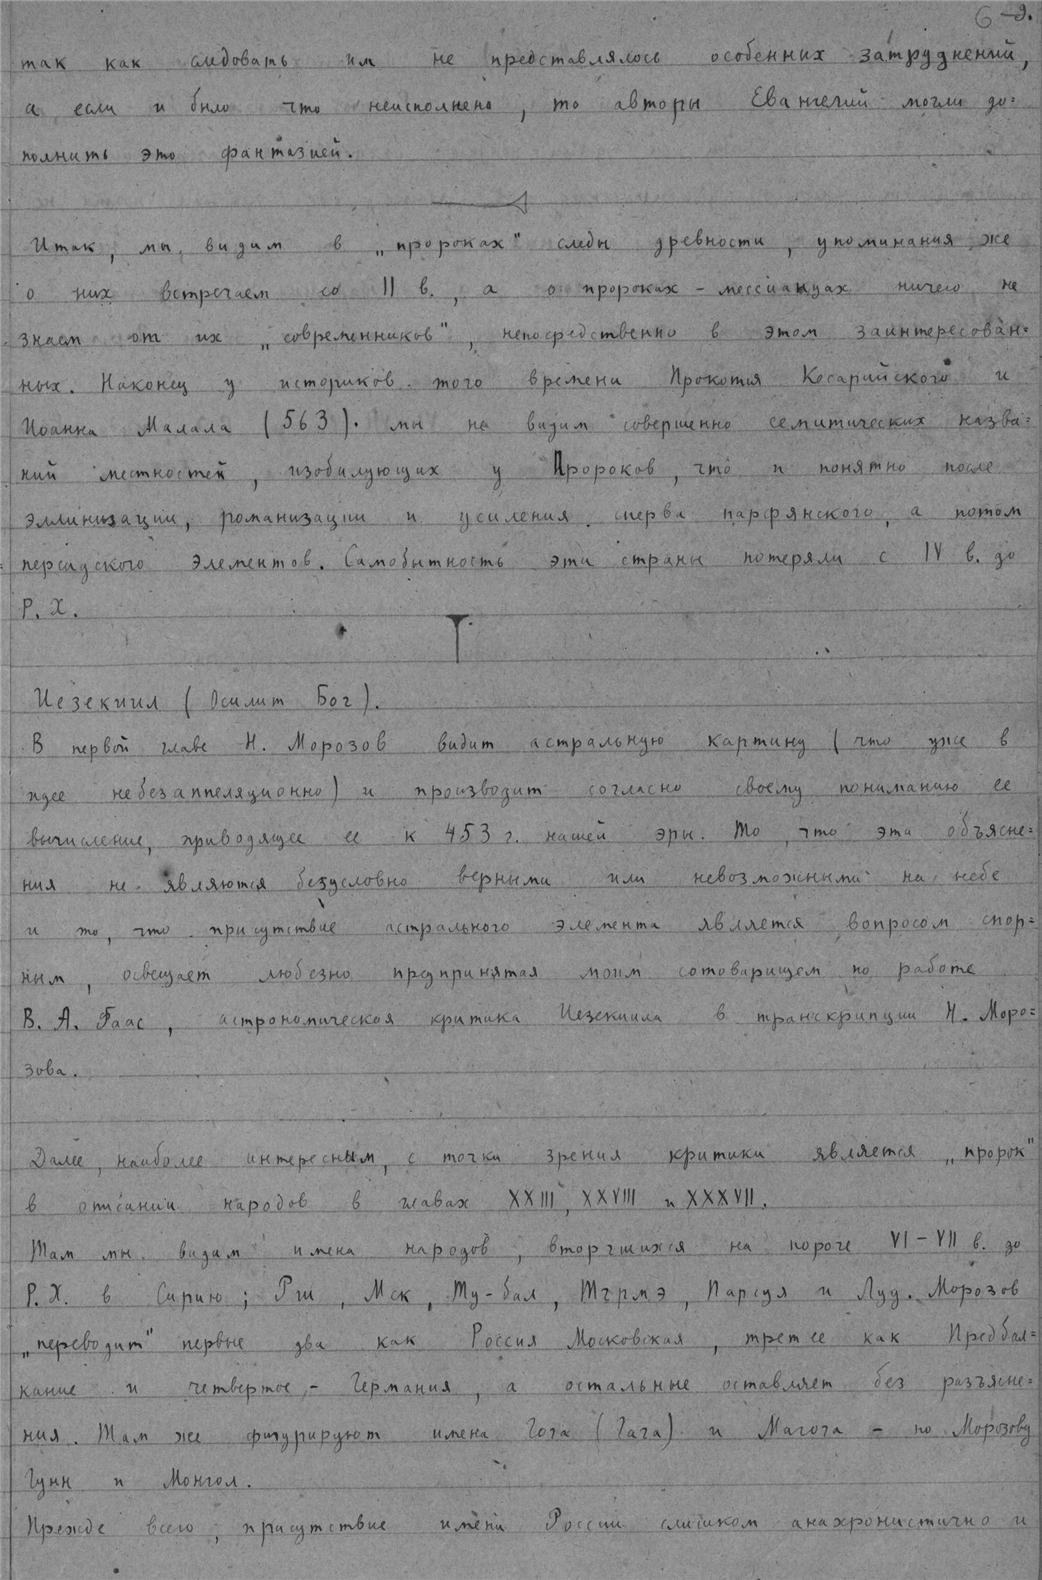 6-д.
так как следовать им не представлялось особенных затруднений,
а если и было что неисполнено, то авторы Евангелий могли до=
полнить это фантазией.
Итак, мы видим в „пророках" следы древности, упоминания же
о них встречаем со II в., а о пророках - мессианцах ничего не
знаем от их „современников", непосредственно в этом заинтересован=
ных. Наконец у историков того времени Прокопия Кесарийского и
Иоанна Малала (563). мы не видим совершенно семитических назва=
ний местностей, изобилующих у Пророков, что и понятно после
эллинизации, романизации и усиления сперва парфянского, а потом
персидского элементов. Самобытность эти страны потеряли с IV в. до
Р. Х.
Иезекиил (Осилит Бог).
В первой главе Н. Морозов видит астральную картину (что уже в
идее небезаппеляционно) и производит согласно своему пониманию ее
вычисление, приводящее ее к 453 г. нашей эры. То, что эта объясне=
ния не являются безусловно верными или невозможными на небе
и то, что присутствие астрального элемента является вопросом спор=
ным, освещает любезно предпринятая моим сотоварищем по работе
В. А. Гаас, астрономическая критика Иезекиила в транскрипции Н. Моро=
зова.
Далее, наиболее интересным, с точки зрения критики является „пророк"
в описании народов в главах XXIII, XXVIII и XXXVII.
Там мы видим имена народов, вторгшихся на пороге VI-VII в. до
Р. Х. в Сирию; Рш, Мск, Ту-бал, Тгрмэ, Парсуя и Луд. Морозов
„переводит" первые два как Россия Московская, третье как Предбал=
кание и четвертое - Германия, а остальные оставляет без разъясне=
ния. Там же фигурируют имена Гога (Гага) и Магога - по Морозову
Гунн и Монгол.
Прежде всего, присутствие имени России слишком анахронистично и